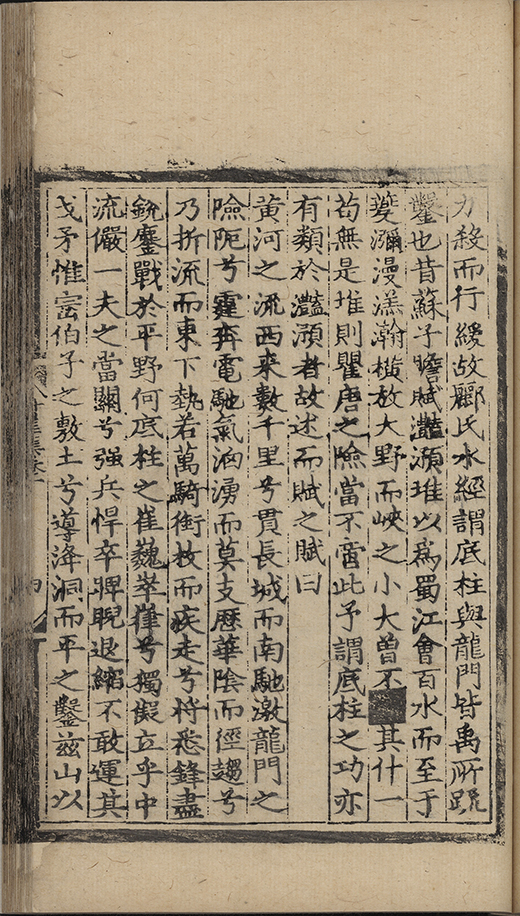 力殺而行緩故酈氏水經謂底柱與龍門皆禹所䟽
鑿也昔蘇子瞻賦灩澦堆以爲蜀江會百水而至于
夔瀰漫浩瀚横放大野而峽之小大曾不其什一
苟無是堆則瞿唐之險當不啻此予謂底柱之功亦
有類於灩澦者故述而賦之賦曰
黄河之流西來數千里兮貫長城而南馳激龍門之
險阨兮霆奔電馳氣洶湧而莫支歷華陰而徑趨兮
乃折流而東下勢若萬騎銜枚而疾走兮將悉鋒盡
銳鏖戰於平野何底柱之崔巍崒嵂兮獨儼立乎中
流儼一夫之當關兮强兵悍卒睥睨退縮不敢運其
戈矛惟宻伯子之敷土兮導洚洞而平之鑿兹山以